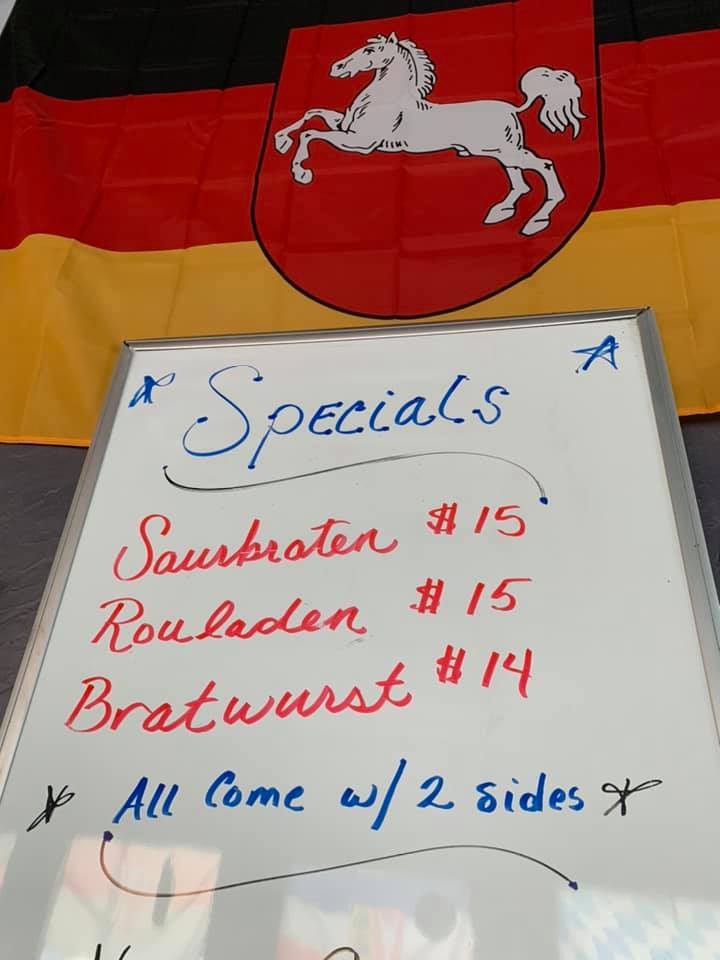 Specials
Saurbraten $15
Rouladen $15
Bratwurst $14
All Come w/ 2 sides